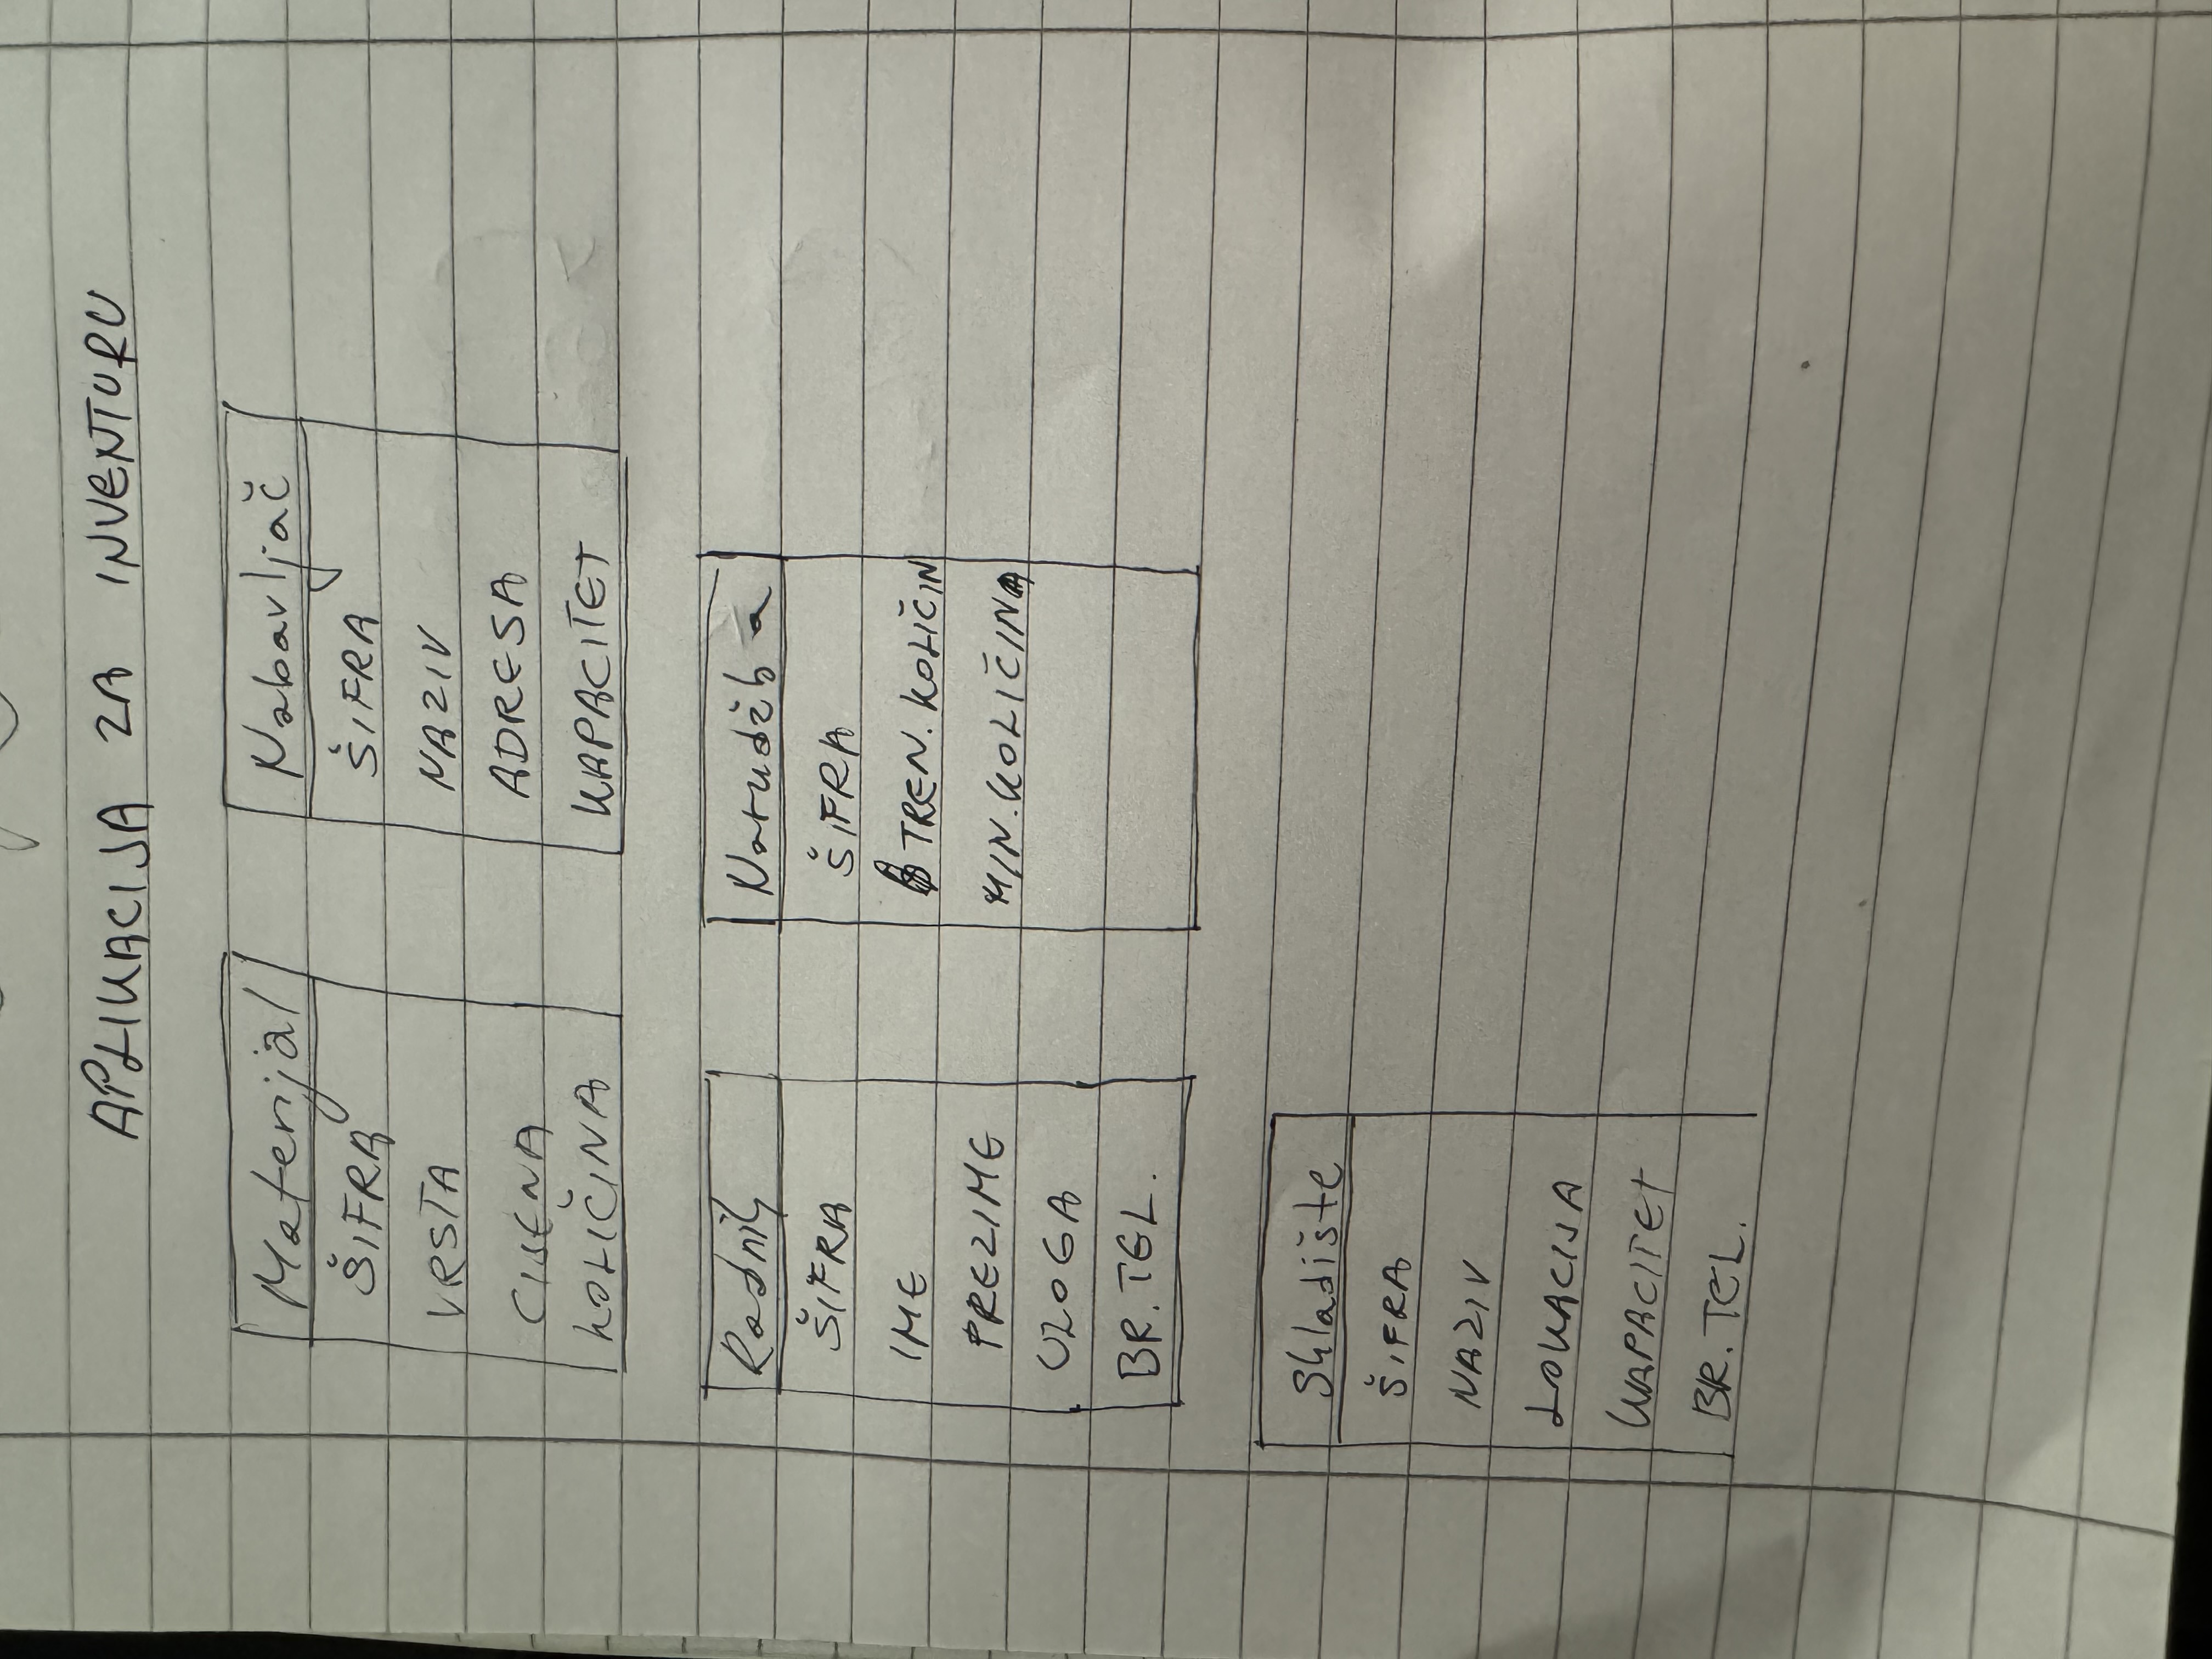 APLIKACIJA ZA INVENTURU
Materijal
ŠIFRA
VRSTA
CIJENA
KOLIČINA
Nabavljač
ŠIFRA
NAZIV
ADRESA
KAPACITET
Radnik
ŠIFRA
IME
PREZIME
ULOGA
BR. TEL.
Narudžba
ŠIFRA
TREN. KOLIČIN
MIN. KOLIČINA
Skladište
ŠIFRA
NAZIV
LOKACIJA
KAPACITET
BR. TEL.